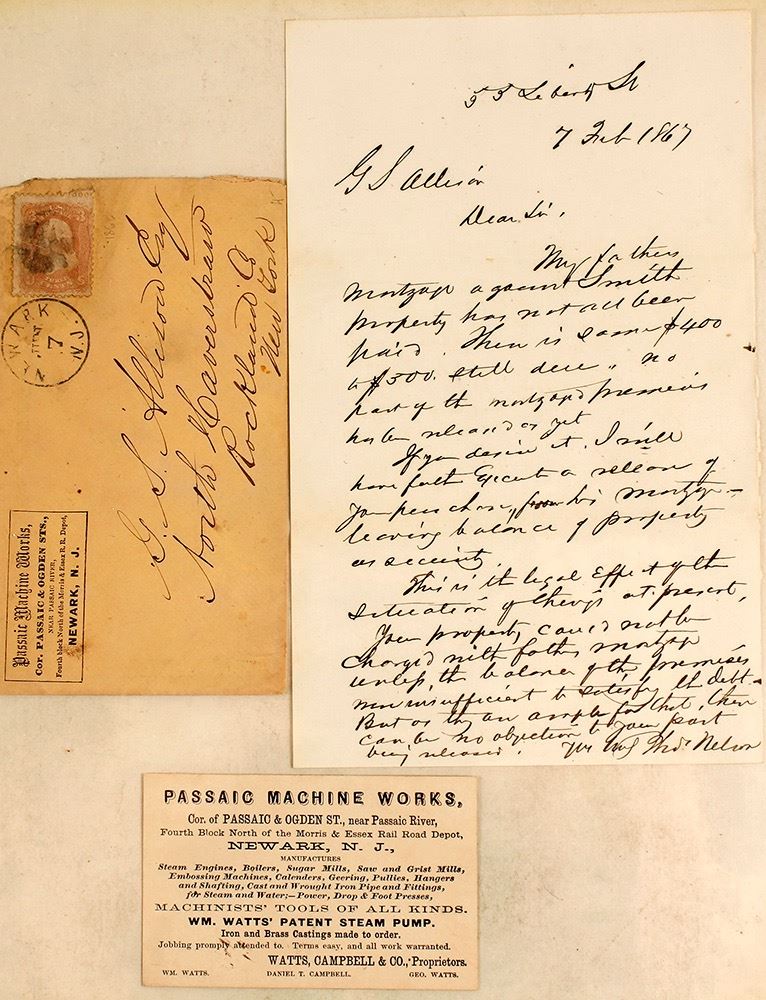 55 Liberty St
7 Feb 1867
G S Allison
Dear Sir,
My fathers
mortgage against Smith
property has not all been
paid. There is some $400
or $500. still due, no
part of the mortgaged premises
has been released as yet
If you desire it. I will
have father Execute a release of
your purchase, from his mortgage –
leaving balance of property
as security.
This is the legal Effect of the
situation of things at present,
Your property could not be
charged with fathers mortgage
unless the balance of the premises
was insufficient to satisfy the debt.
But as they are ample for that, there
can be no objection to your part
being released. Yrs truly Thos Nelson
NEWARK N.J.
7
G. S. Allison Esq
North Haverstraw
Rockland Co
New York
Passaic Machine Works,
Cor. PASSAIC & OGDEN STS.,
NEAR PASSAIC RIVER,
Fourth block North of the Morris & Essex R. R. Depot,
NEWARK, N. J.
PASSAIC MACHINE WORKS,
Cor. of PASSAIC & OGDEN ST., near Passaic River,
Fourth Block North of the Morris & Essex Rail Road Depot,
NEWARK, N. J.,
MANUFACTURES
Steam Engines, Boilers, Sugar Mills, Saw and Grist Mills,
Embossing Machines, Calenders, Geering, Pullies, Hangers
and Shafting, Cast and Wrought Iron Pipe and Fittings,
for Steam and Water;—Power, Drop & Foot Presses,
MACHINISTS' TOOLS OF ALL KINDS.
WM. WATTS' PATENT STEAM PUMP.
Iron and Brass Castings made to order.
Jobbing promply attended to. Terms easy, and all work warranted.
WATTS, CAMPBELL & CO., Proprietors.
WM. WATTS. DANIEL T. CAMPBELL. GEO. WATTS.